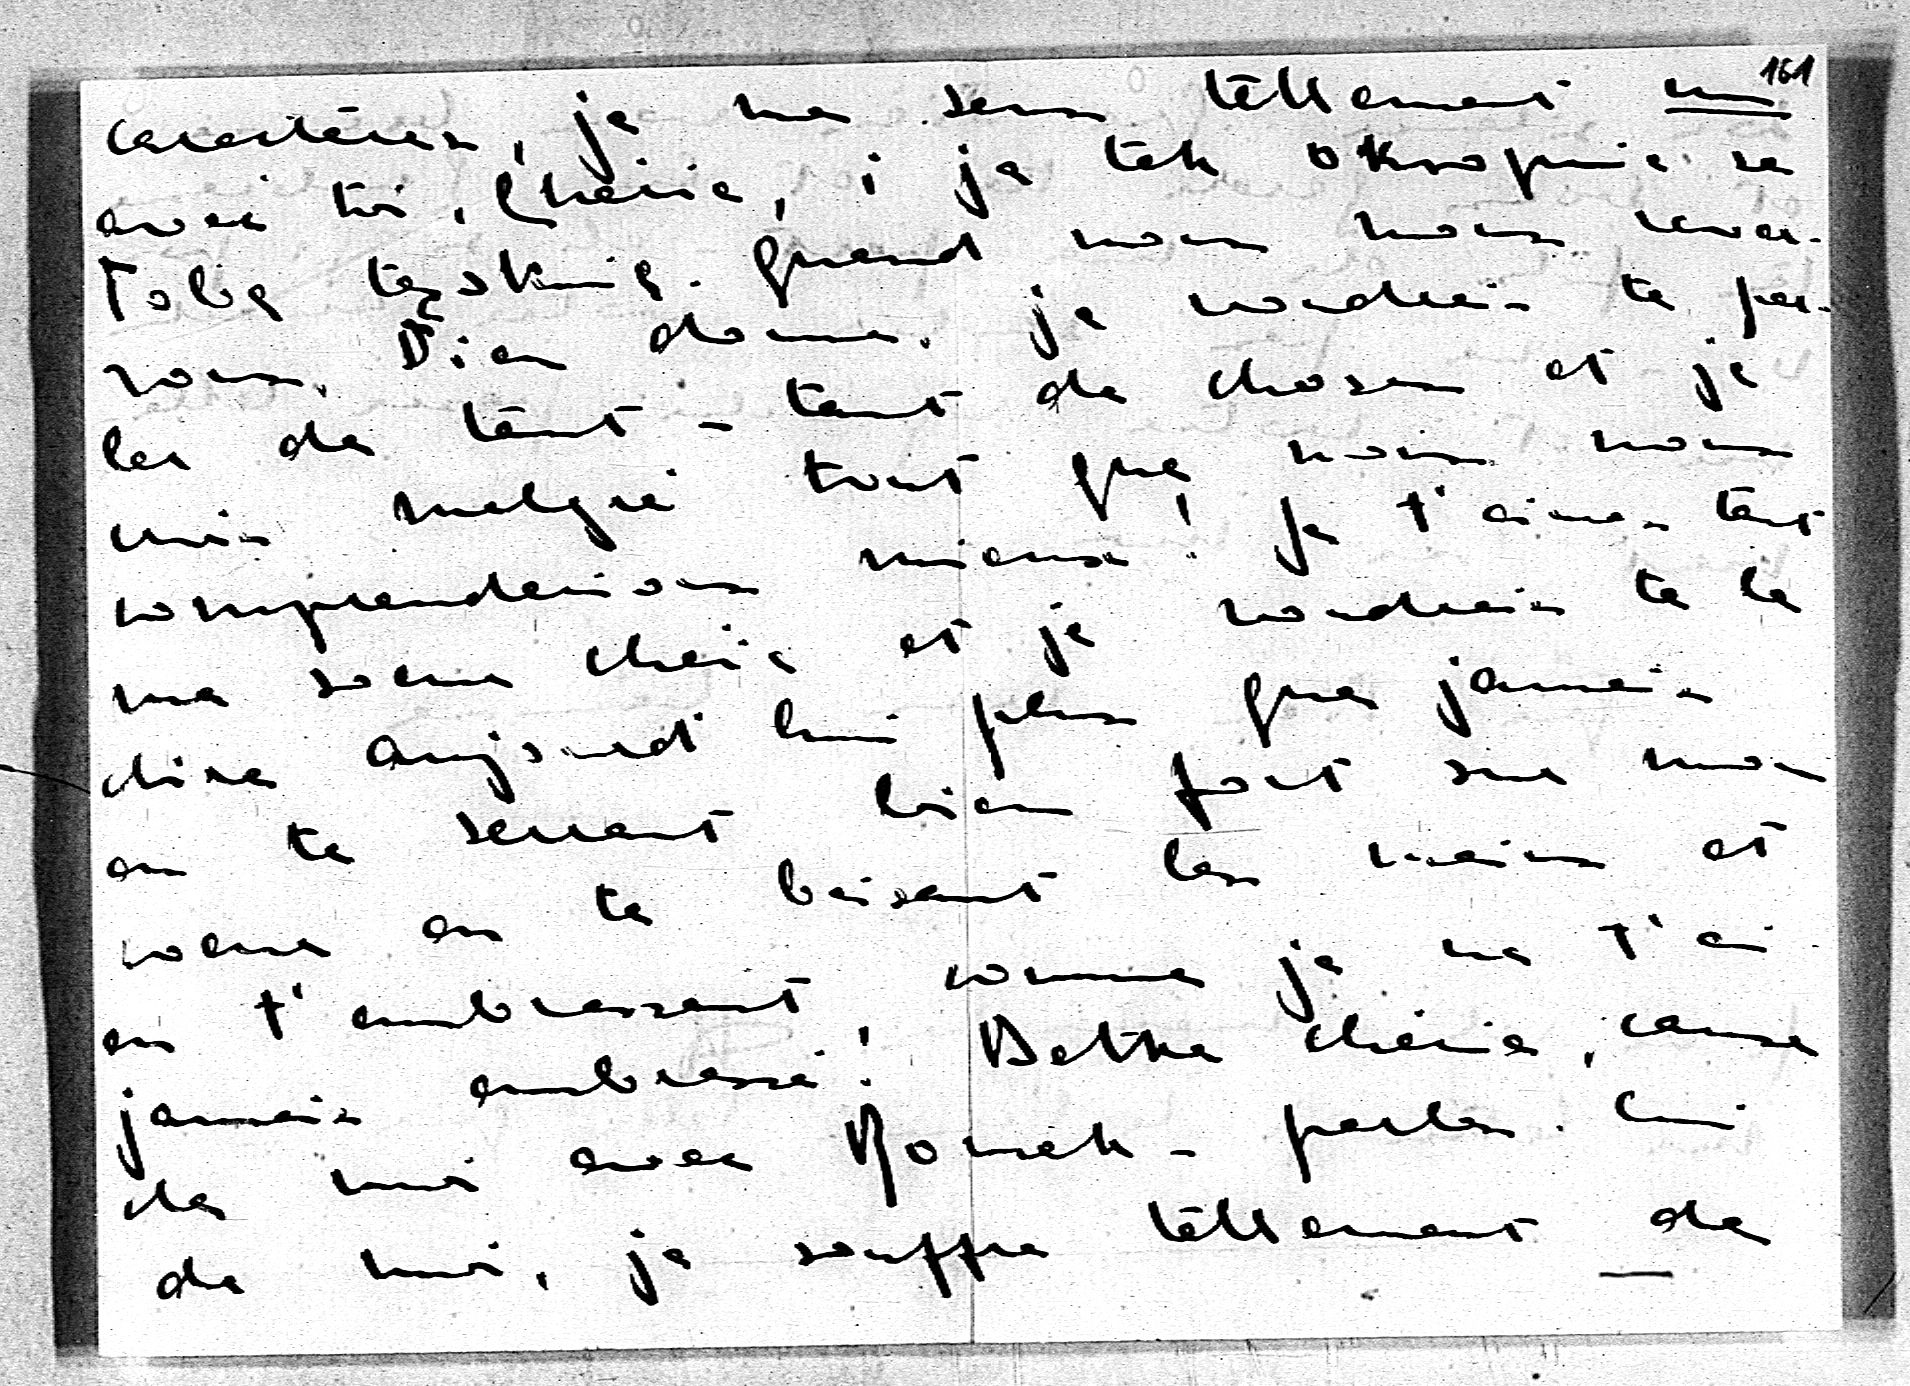 161
caractères, je me sens tellement un
avec toi, Chérie, i ja tak okropnie za
Tobą tęsknię. Quand nous nous rever-
rons, Dieu donne, je voudrais te par-
ler de tant - tant de choses et je
suis malgré tout que nous nous
comprenderions mieux! Je t'aimes tant
ma soeur chérie et je voudrais te le
dire aujourd'hui plus que jamais
en te serrant bien fort sur mon
coeur en te baisant les mains et
en t'embrassant comme je ne t'ai
jamais embrassé! Betka chérie, cause
de moi avec Romek - parles lui
de moi, je souffre tellement de